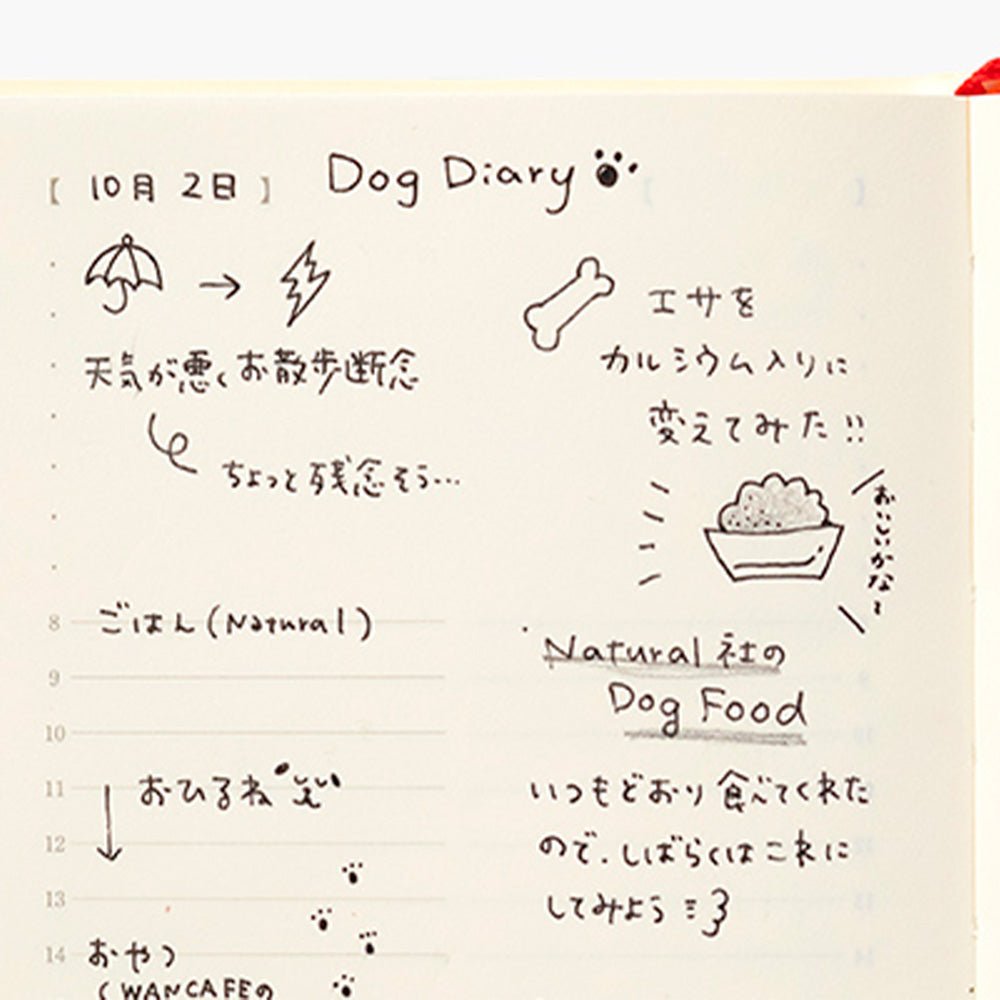 【 10月 2日 】 Dog Diary
天気が悪くお散歩断念
ちょっと残念そう…
8 ごはん(Natural)
9
10
11 おひるね
12
13
14 おやつ
(WANCAFEの
エサを
カルシウム入りに
変えてみた!!
おいしいかな〜
Natural社の
Dog Food
いつもどおり食べてくれた
ので、しばらくはこれに
してみよう